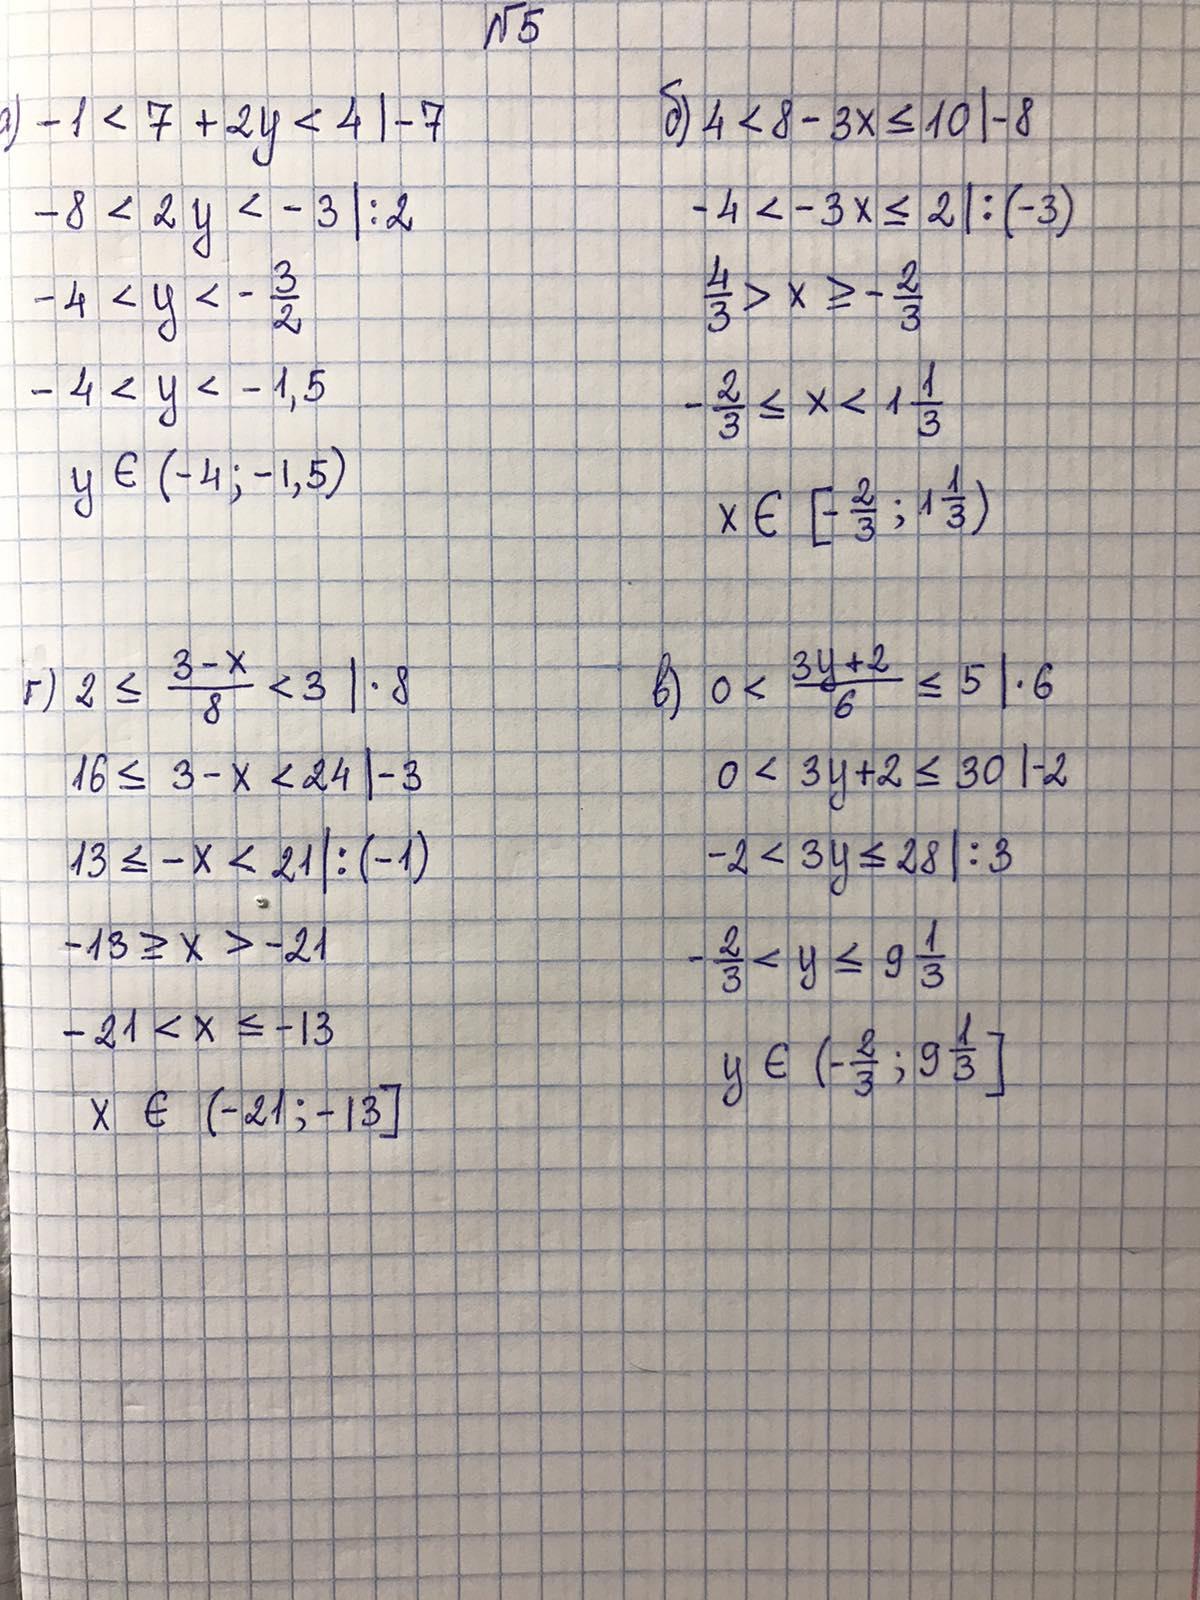 №5
а) -1 < 7 + 2y < 4 | -7
-8 < 2y < -3 | : 2
-4 < y < -3/2
-4 < y < -1,5
y ∈ (-4; -1,5)
б) 4 < 8 - 3x ≤ 10 | -8
-4 < -3x ≤ 2 | : (-3)
4/3 > x ≥ -2/3
-2/3 ≤ x < 1 1/3
x ∈ [-2/3; 1 1/3)
г) 2 ≤ (3-x)/8 < 3 | · 8
16 ≤ 3 - x < 24 | -3
13 ≤ -x < 21 | : (-1)
-13 ≥ x > -21
-21 < x ≤ -13
x ∈ (-21; -13]
в) 0 < (3y+2)/6 ≤ 5 | · 6
0 < 3y+2 ≤ 30 | -2
-2 < 3y ≤ 28 | : 3
-2/3 < y ≤ 9 1/3
y ∈ (-2/3; 9 1/3]